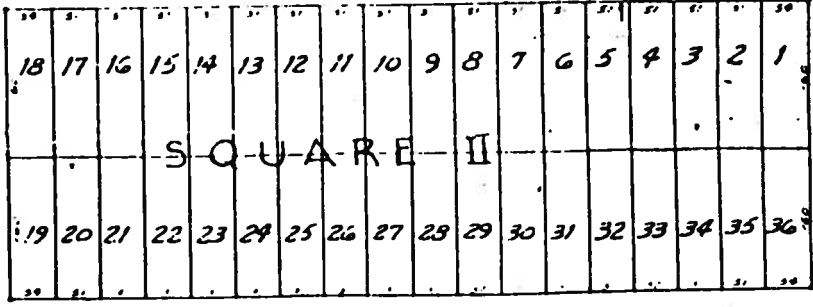 18 17 16 15 14 13 12 11 10 9 8 7 6 5 4 3 2 1
SQUARE II
19 20 21 22 23 24 25 26 27 28 29 30 31 32 33 34 35 36